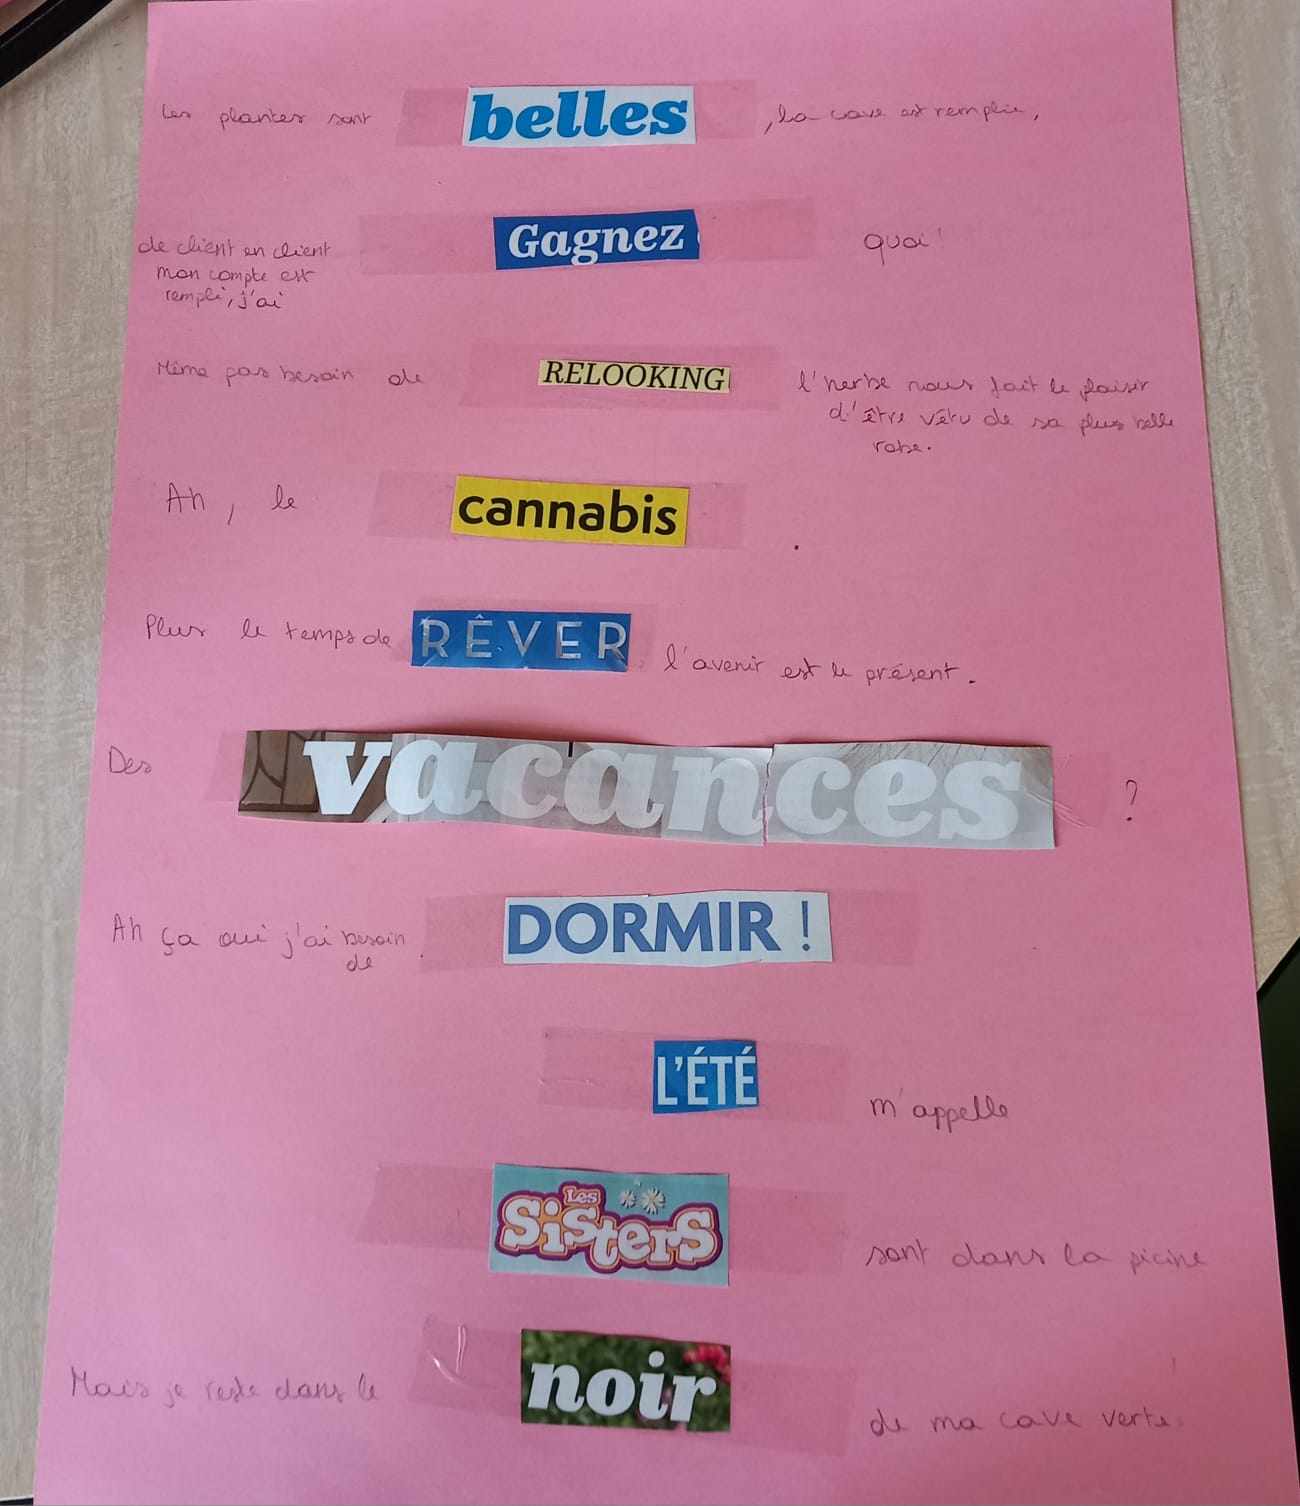 Les plantes sont belles , la cave est remplie,
de client en client Gagnez quoi!
mon compte est
rempli, j'ai
Même pas besoin de RELOOKING l'herbe nous fait le plaisir
d'être vêtu de sa plus belle
robe.
Ah, le cannabis .
Plus le temps de RÊVER l'avenir est le présent.
Des vacances ?
Ah ça oui j'ai besoin DORMIR !
de
L'ÉTÉ m'appelle
Les
SiSterS sont dans la picine
Mais je reste dans le noir de ma cave verte.